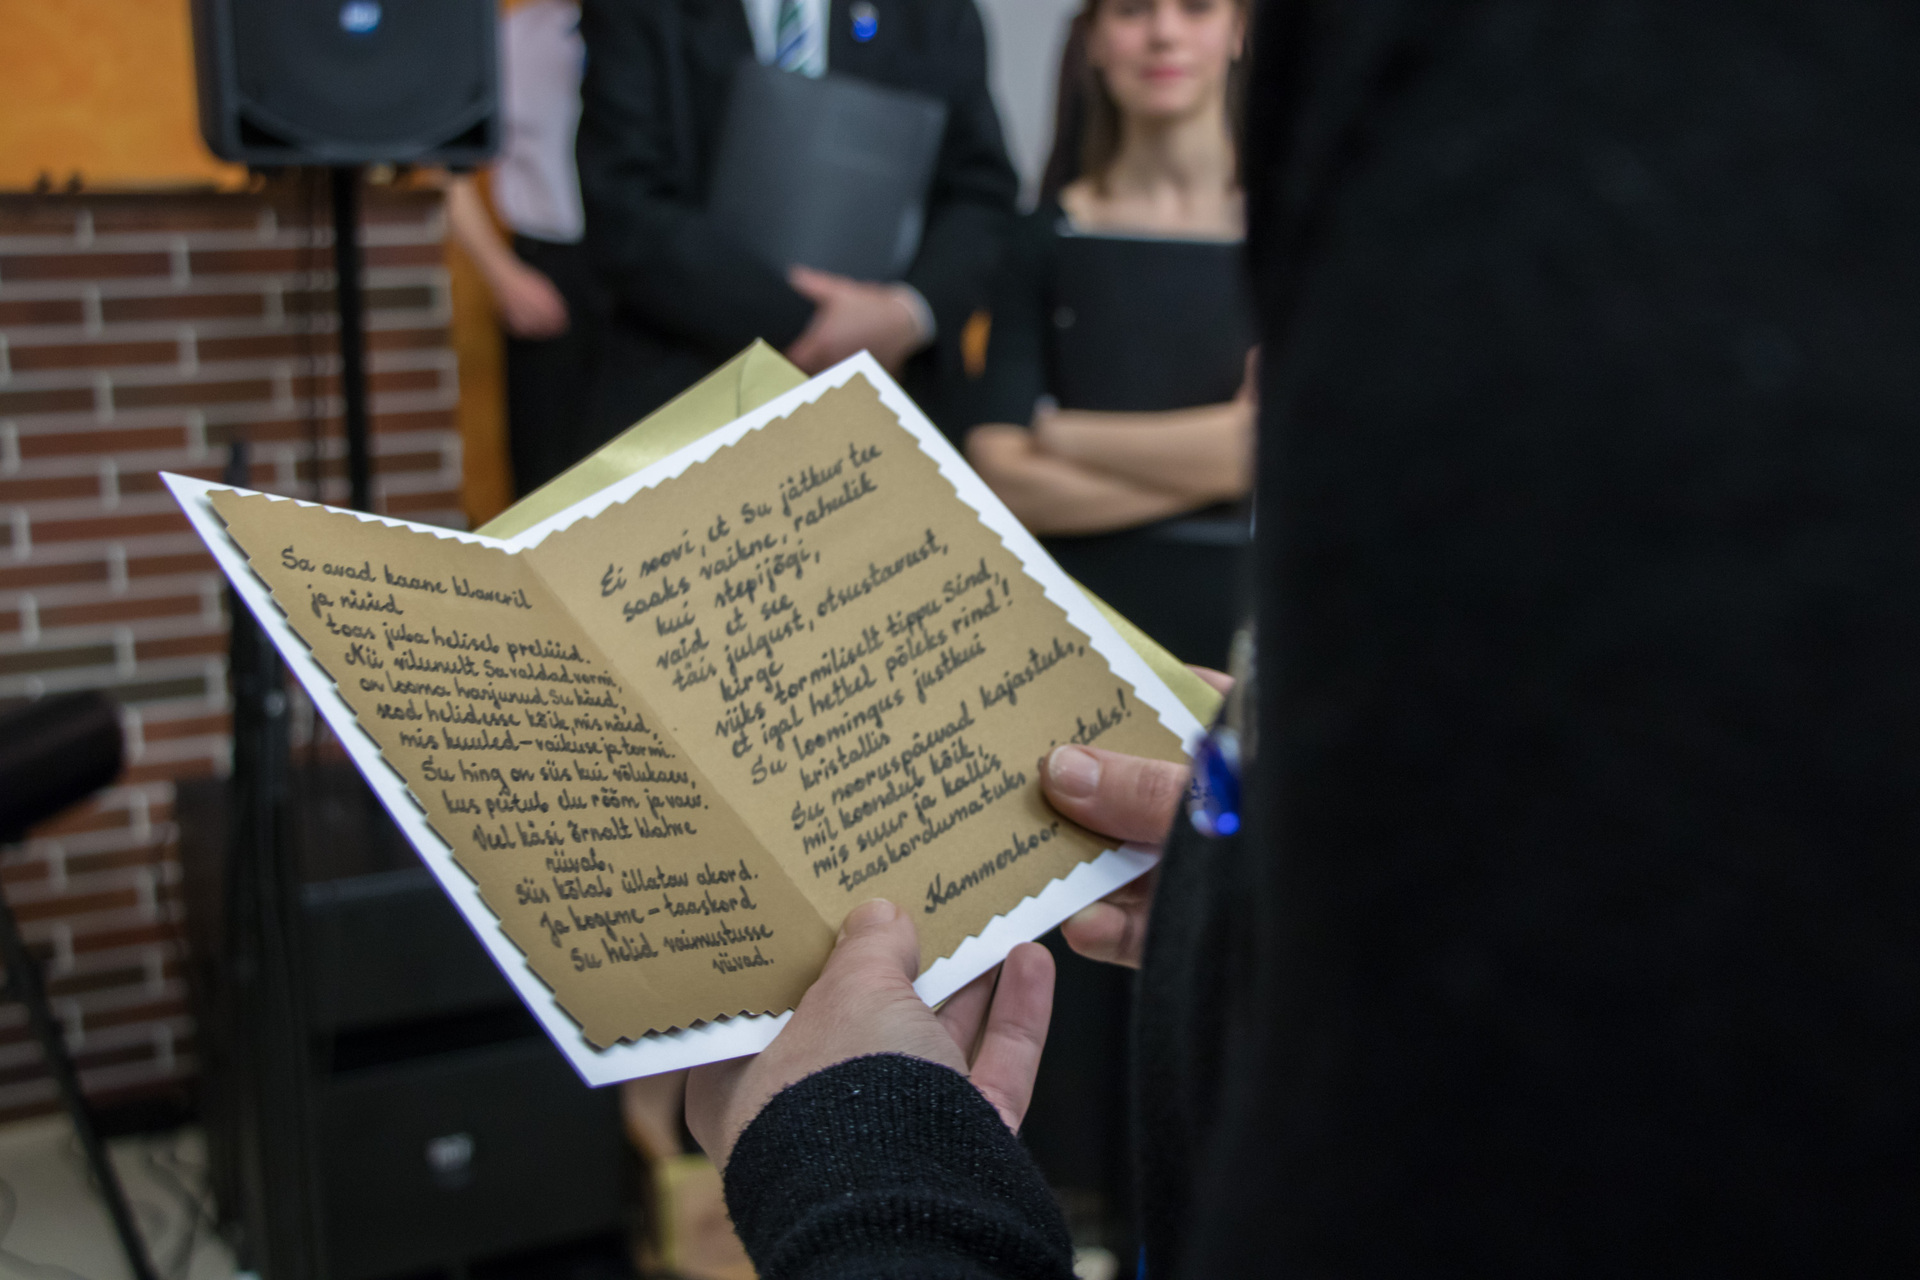 Sa avad kaane klaveril
ja nüüd
toas juba heliseb prelüüd.
Nii vilunult Sa valdad vormi,
on looma harjunud Su käed,
seod helidesse kõik, mis näed,
mis kuuled – vaikuse ja tormi.
Su hing on siis kui võlukaev,
kus peitub elu rõõm ja vaev.
Veel käsi õrnalt klahve
riivab,
siis kõlab üllatav akord.
Ja kogeme – taaskord
Su helid vaimustusse
viivad.
Ei soovi, et Su jätkuv tee
saaks vaikne, rahulik
kui stepijõgi,
vaid et see
täis julgust, otsustavust,
kirge
viiks tormiliselt tippu Sind,
et igal hetkel põleks rind!
Su loomingus justkui
kristallis
Su nooruspäevad kajastuks,
mil koondub kõik,
mis suur ja kallis
taaskordumatuks
Kammerkoor